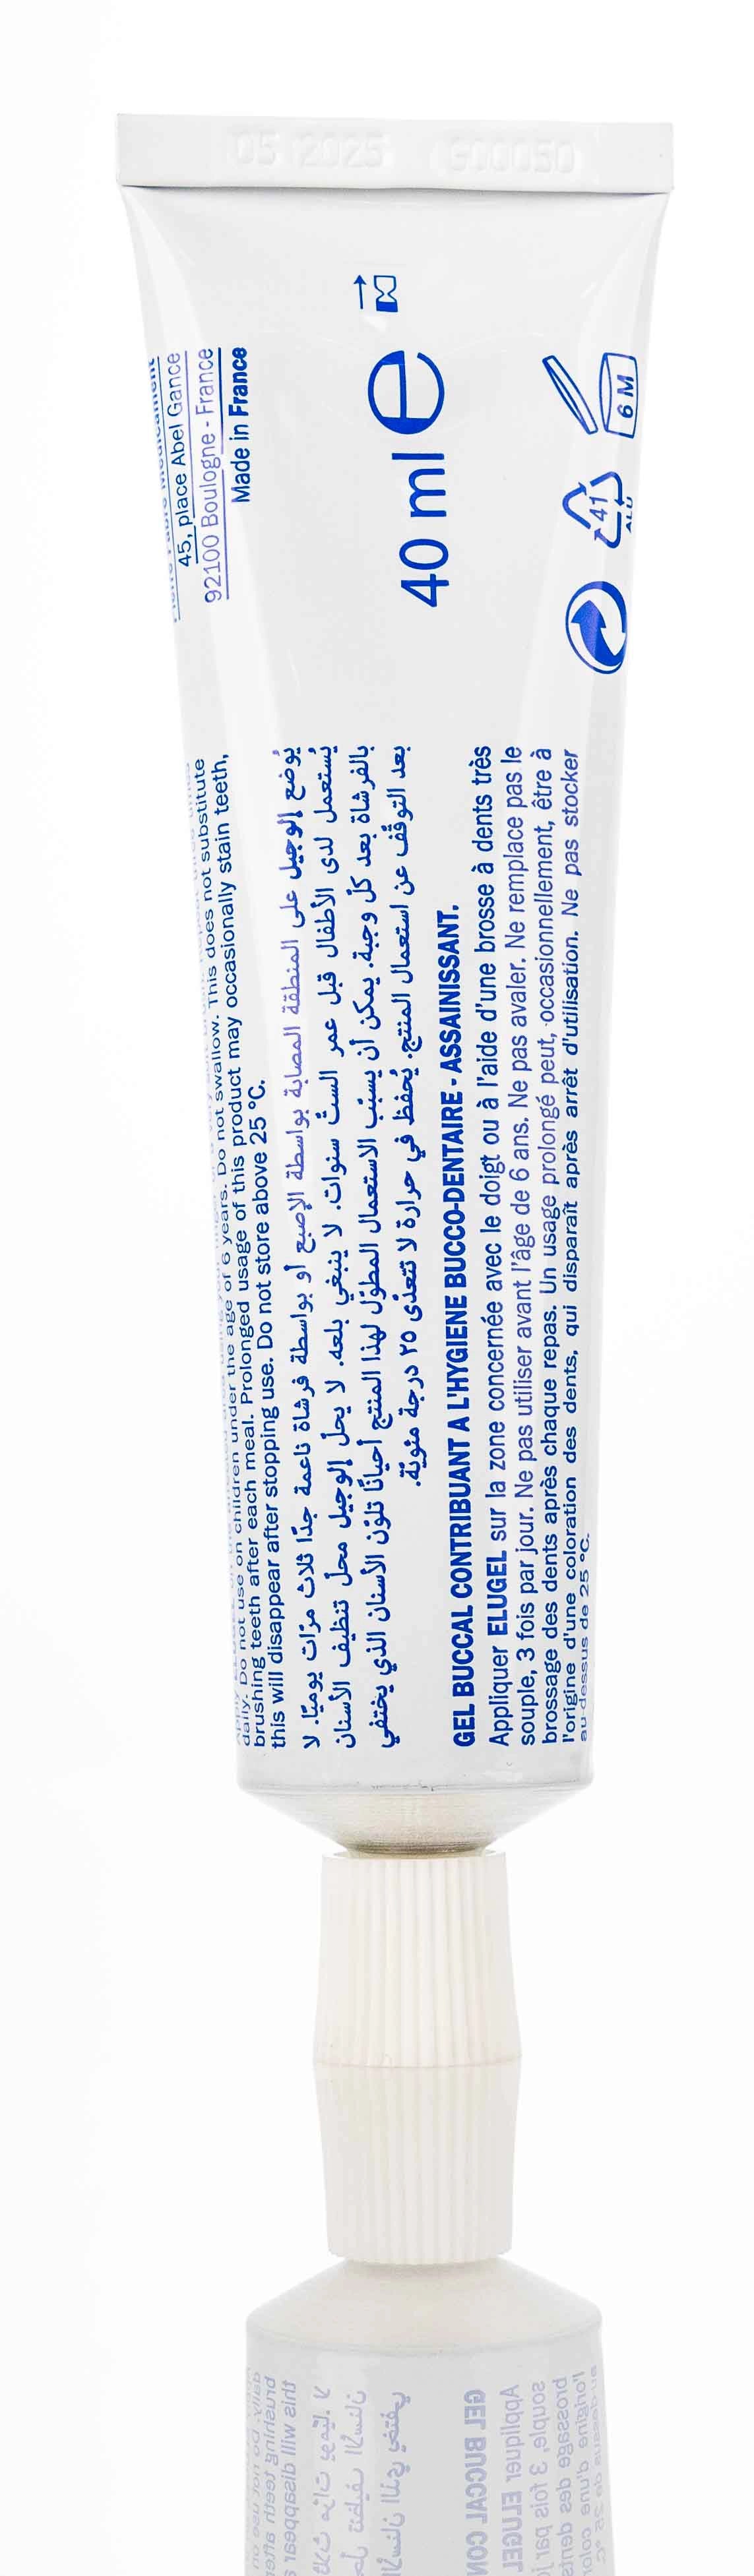 05 2025 G00050
45, place Abel Gance
92100 Boulogne - France
Made in France
40 ml e
6 M
41
ALU
daily. Do not use on children under the age of 6 years. Do not swallow. This does not substitute
brushing teeth after each meal. Prolonged usage of this product may occasionally stain teeth,
this will disappear after stopping use. Do not store above 25 °C.
يُوضع الوجيل على المنطقة المصابة بواسطة الإصبع أو بواسطة فرشاة ناعمة جدًا ثلاث مرّات يوميًا. لا
يُستعمل لدى الأطفال قبل عمر الستّ سنوات. لا ينبغي بلعه. لا يحل الوجيل محلّ تنظيف الأسنان
بالفرشاة بعد كلّ وجبة. يمكن أن يسبّب الاستعمال المطوّل لهذا المنتج أحيانًا تلوّن الأسنان الذي يختفي
بعد التوقّف عن استعمال المنتج. يُحفظ في حرارة لا تتعدّى ٢٥ درجة مئويّة.
GEL BUCCAL CONTRIBUANT A L'HYGIENE BUCCO-DENTAIRE - ASSAINISSANT.
Appliquer ELUGEL sur la zone concernée avec le doigt ou à l'aide d'une brosse à dents très
souple, 3 fois par jour. Ne pas utiliser avant l'âge de 6 ans. Ne pas avaler. Ne remplace pas le
brossage des dents après chaque repas. Un usage prolongé peut, occasionnellement, être à
l'origine d'une coloration des dents, qui disparaît après arrêt d'utilisation. Ne pas stocker
au-dessus de 25 °C.